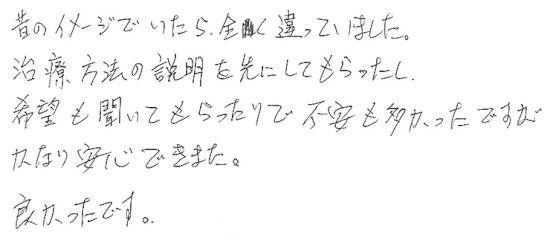 昔のイメージでいたら、全く違っていました。
治療方法の説明を先にしてもらったし、
希望も聞いてもらったりで不安も多かったですが
かなり安心できまた。
良かったです。